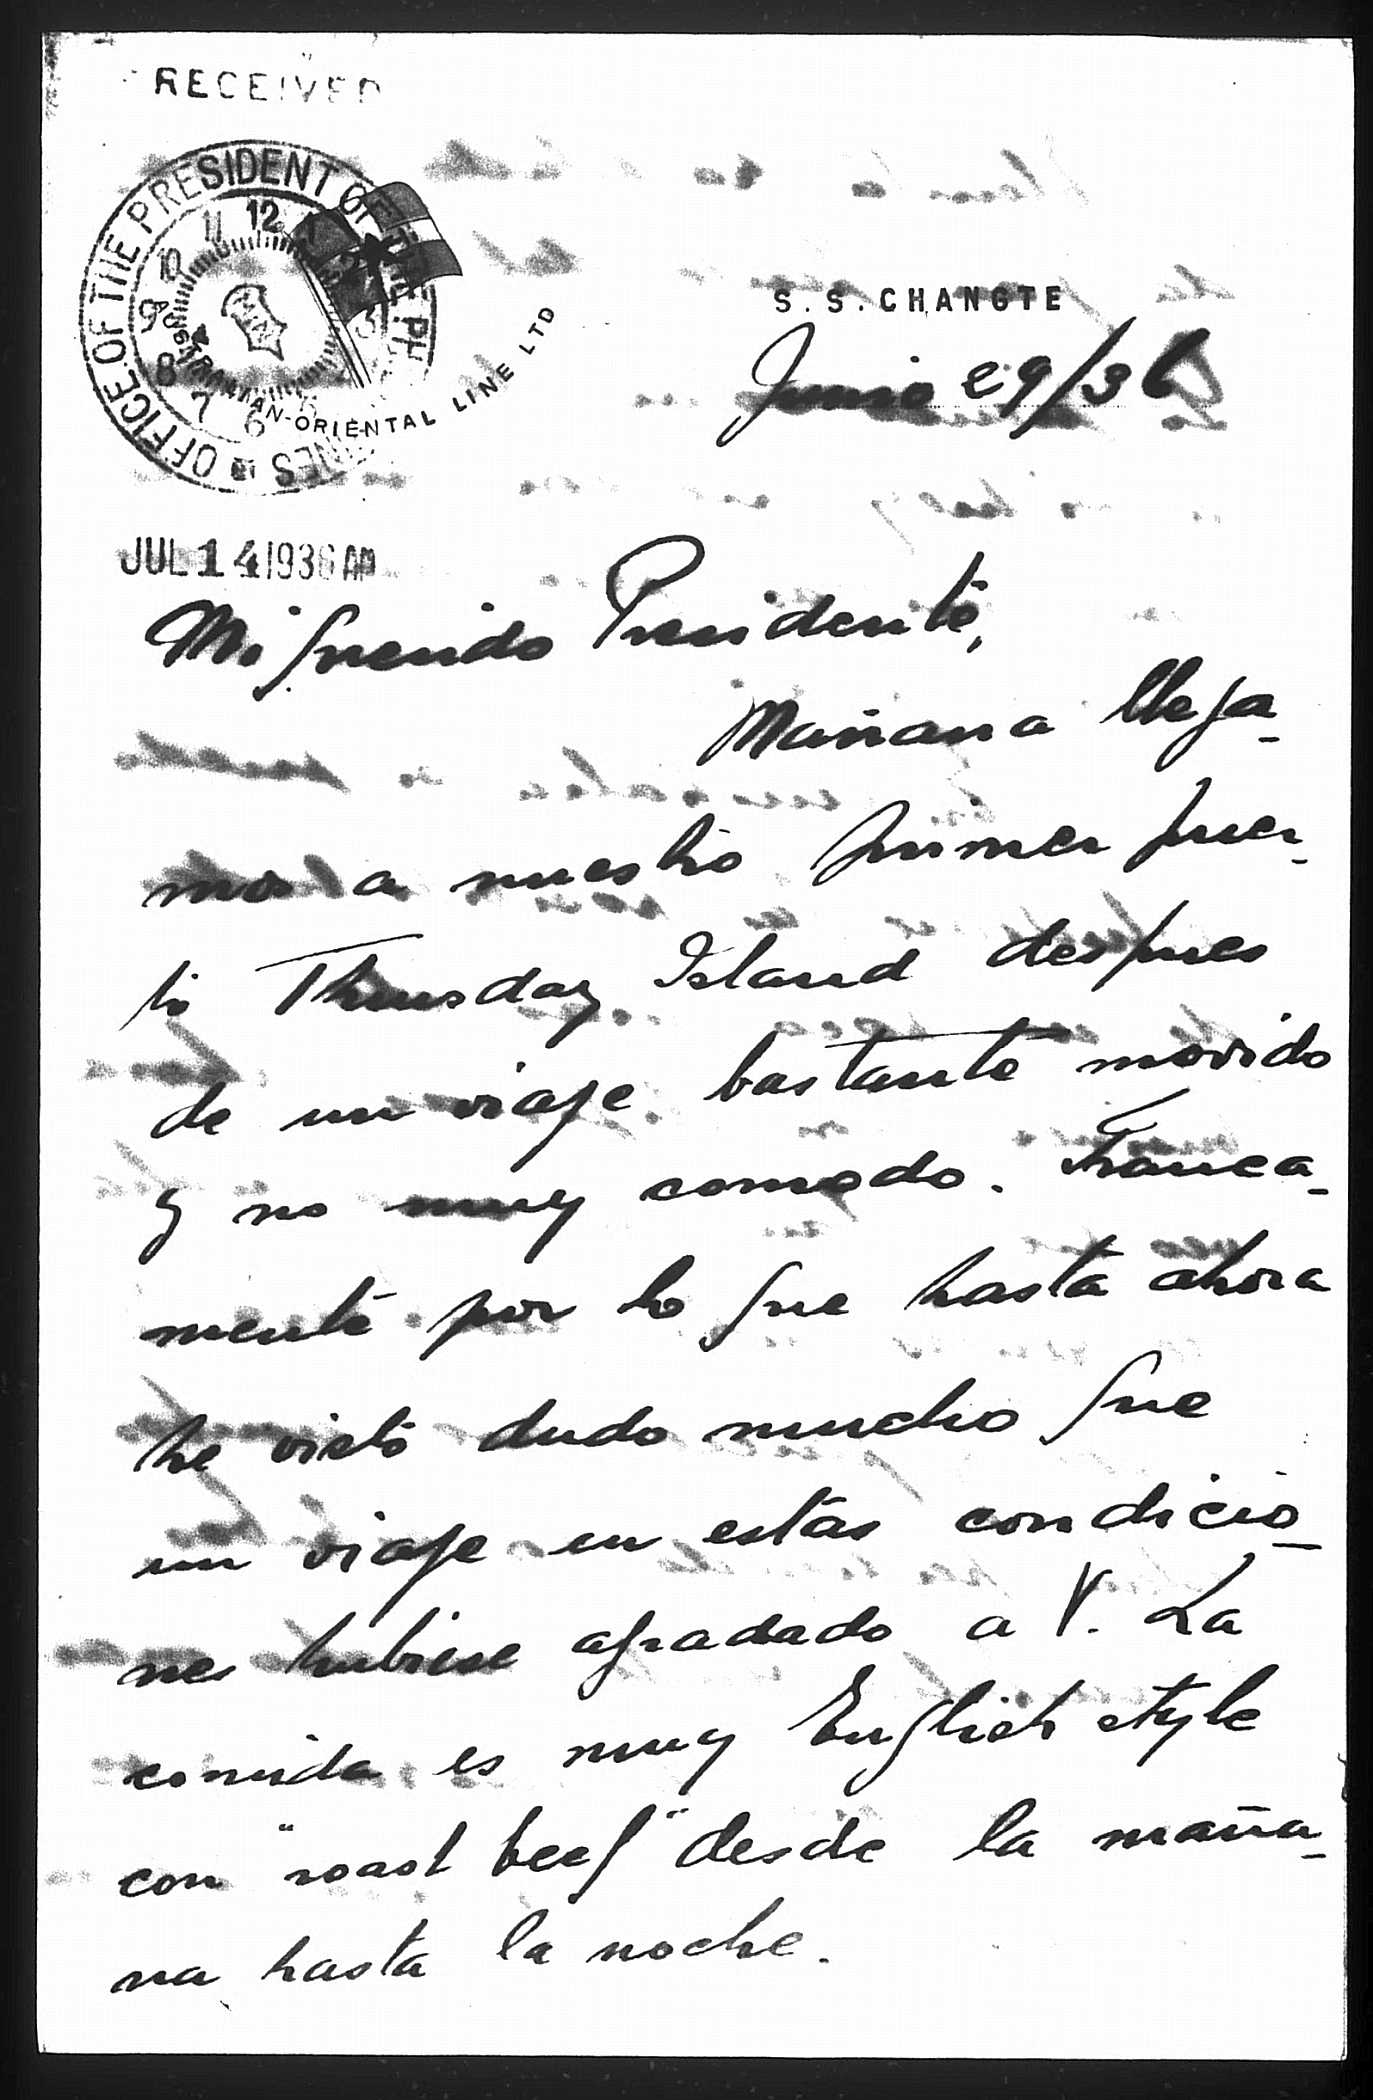 RECEIVED
OFFICE OF THE PRESIDENT OF THE PHILIPPINES
AUSTRALIAN-ORIENTAL LINE LTD
S.S. CHANGTE
Junio 29/36
JUL 14 1936 AM
Mi querido Presidente,
Mañana llega-
mos a nuestro primer puer-
to Thursday Island despues
de un viaje bastante movido
y no muy comodo. Franca-
mente por lo que hasta ahora
he visto dudo mucho que
un viaje en estas condicio-
nes hubiese agradado a V. La
comida es muy English style
con "roast beef" desde la maña-
na hasta la noche.